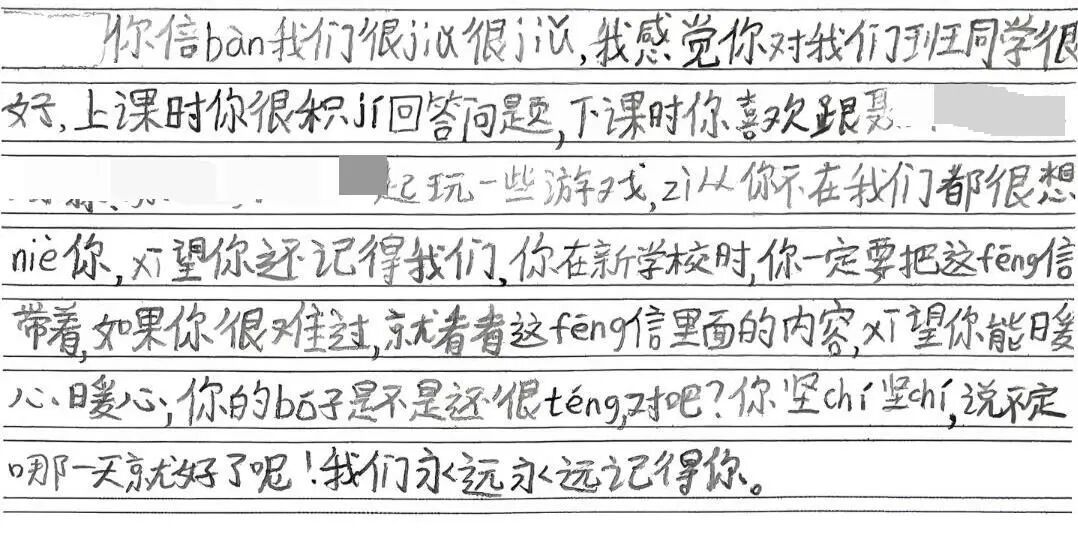 你倍bàn我们很jiǔ很jiǔ,我感觉你对我们班同学很
好,上课时你很积jí回答问题,下课时你喜欢跟聂
起玩一些游戏,zì从你不在我们都很想
niè你,xī望你还记得我们,你在新学校时,你一定要把这fēng信
带着,如果你很难过,就看看这fēng信里面的内容,xī望你能暖
心暖心,你的bó子是不是还很téng,对吧?你坚chí坚chí,说不定
哪一天就好了呢!我们永远永远记得你。